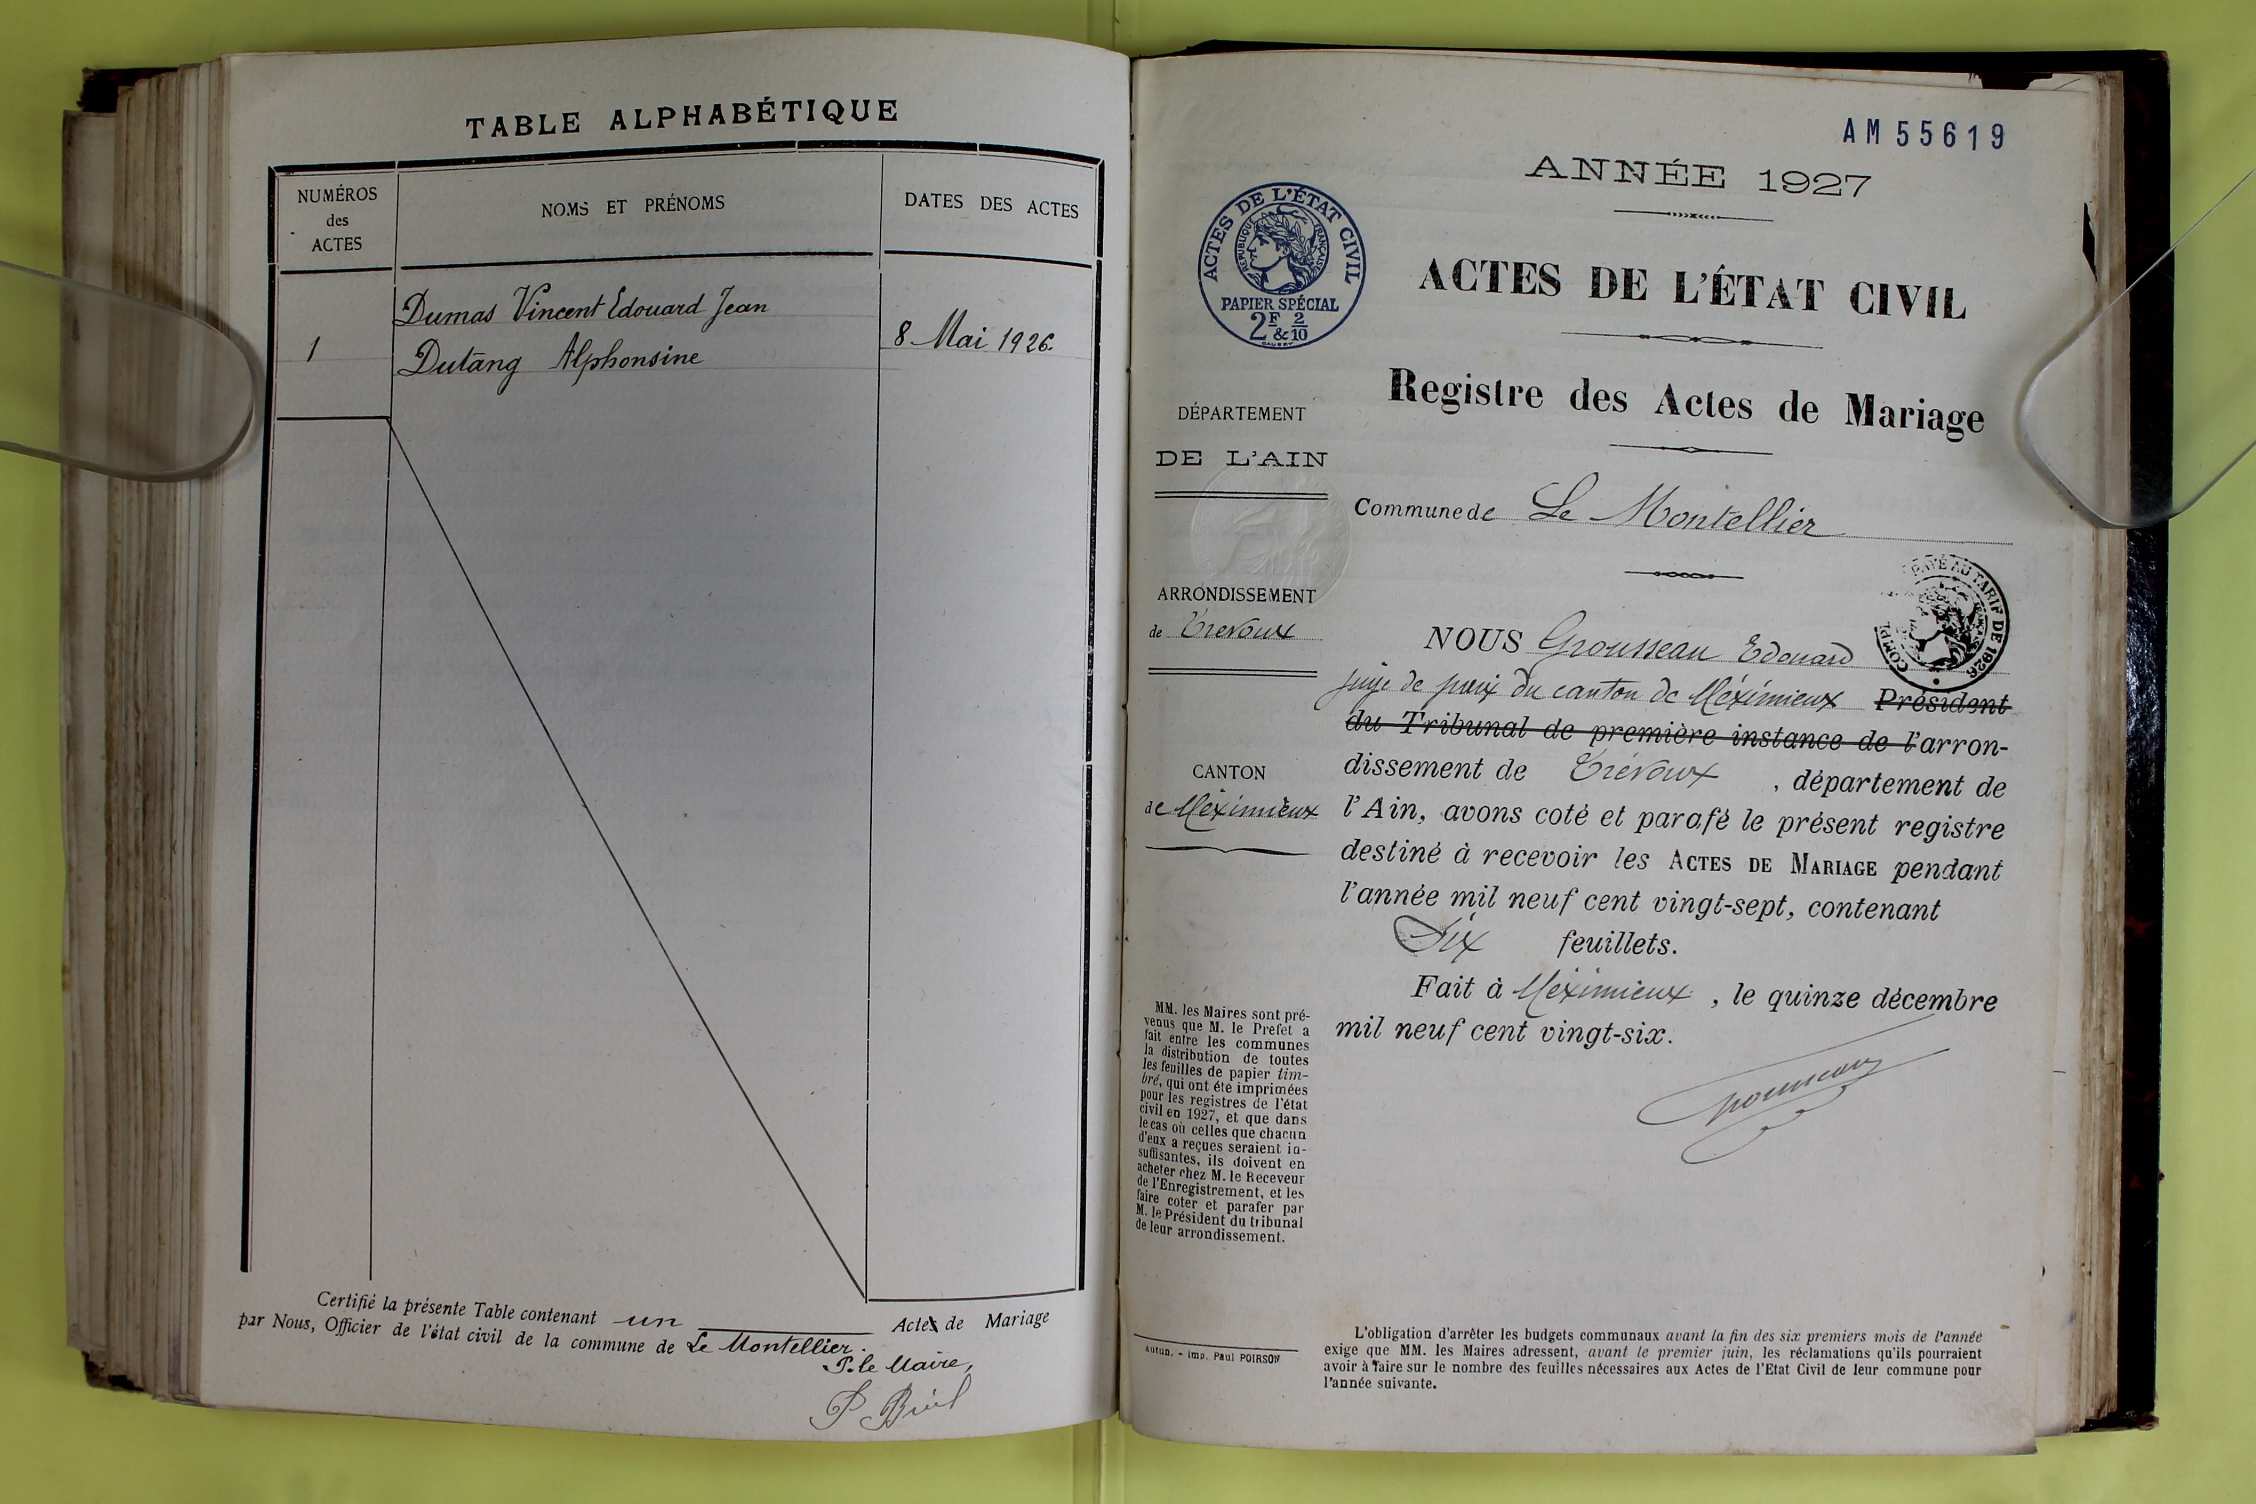 TABLE ALPHABÉTIQUE
NUMÉROS
des
ACTES
NOMS ET PRÉNOMS
DATES DES ACTES
Dumas Vincent Edouard Jean
1
8 Mai 1926
Dutang Alphonsine
Certifié la présente Table contenant un Actes de Mariage
par Nous, Officier de l'état civil de la commune de Le Montellier.
P. le Maire,
AM 55619
ANNÉE 1927
ACTES DE L'ÉTAT CIVIL
RÉPUBLIQUE FRANÇAISE
PAPIER SPÉCIAL
2F & 2/10
ACTES DE L'ÉTAT CIVIL
Registre des Actes de Mariage
DÉPARTEMENT
DE L'AIN
Commune de Le Montellier
ARRONDISSEMENT
de Trévoux
PAYÉ AU TARIF DE 1926
CANTON
de Méximieux
NOUS Grousseau Edouard
juge de paix du canton de Méximieux Président
du Tribunal de première instance de l'arron-
dissement de Trévoux, département de
l'Ain, avons coté et parafé le présent registre
destiné à recevoir les ACTES DE MARIAGE pendant
l'année mil neuf cent vingt-sept, contenant
Six feuillets.
Fait à Méximieux, le quinze décembre
mil neuf cent vingt-six.
MM. les Maires sont pré-
venus que M. le Préfet a
fait entre les communes
la distribution de toutes
les feuilles de papier tim-
bré, qui ont été imprimées
pour les registres de l'état
civil en 1927, et que dans
le cas où celles que chacun
d'eux a reçues seraient in-
suffisantes, ils doivent en
acheter chez M. le Receveur
de l'Enregistrement, et les
faire coter et parafer par
M. le Président du tribunal
de leur arrondissement.
Autun. - Imp. Paul POIRSON
L'obligation d'arrêter les budgets communaux avant la fin des six premiers mois de l'année
exige que MM. les Maires adressent, avant le premier juin, les réclamations qu'ils pourraient
avoir à faire sur le nombre des feuilles nécessaires aux Actes de l'Etat Civil de leur commune pour
l'année suivante.